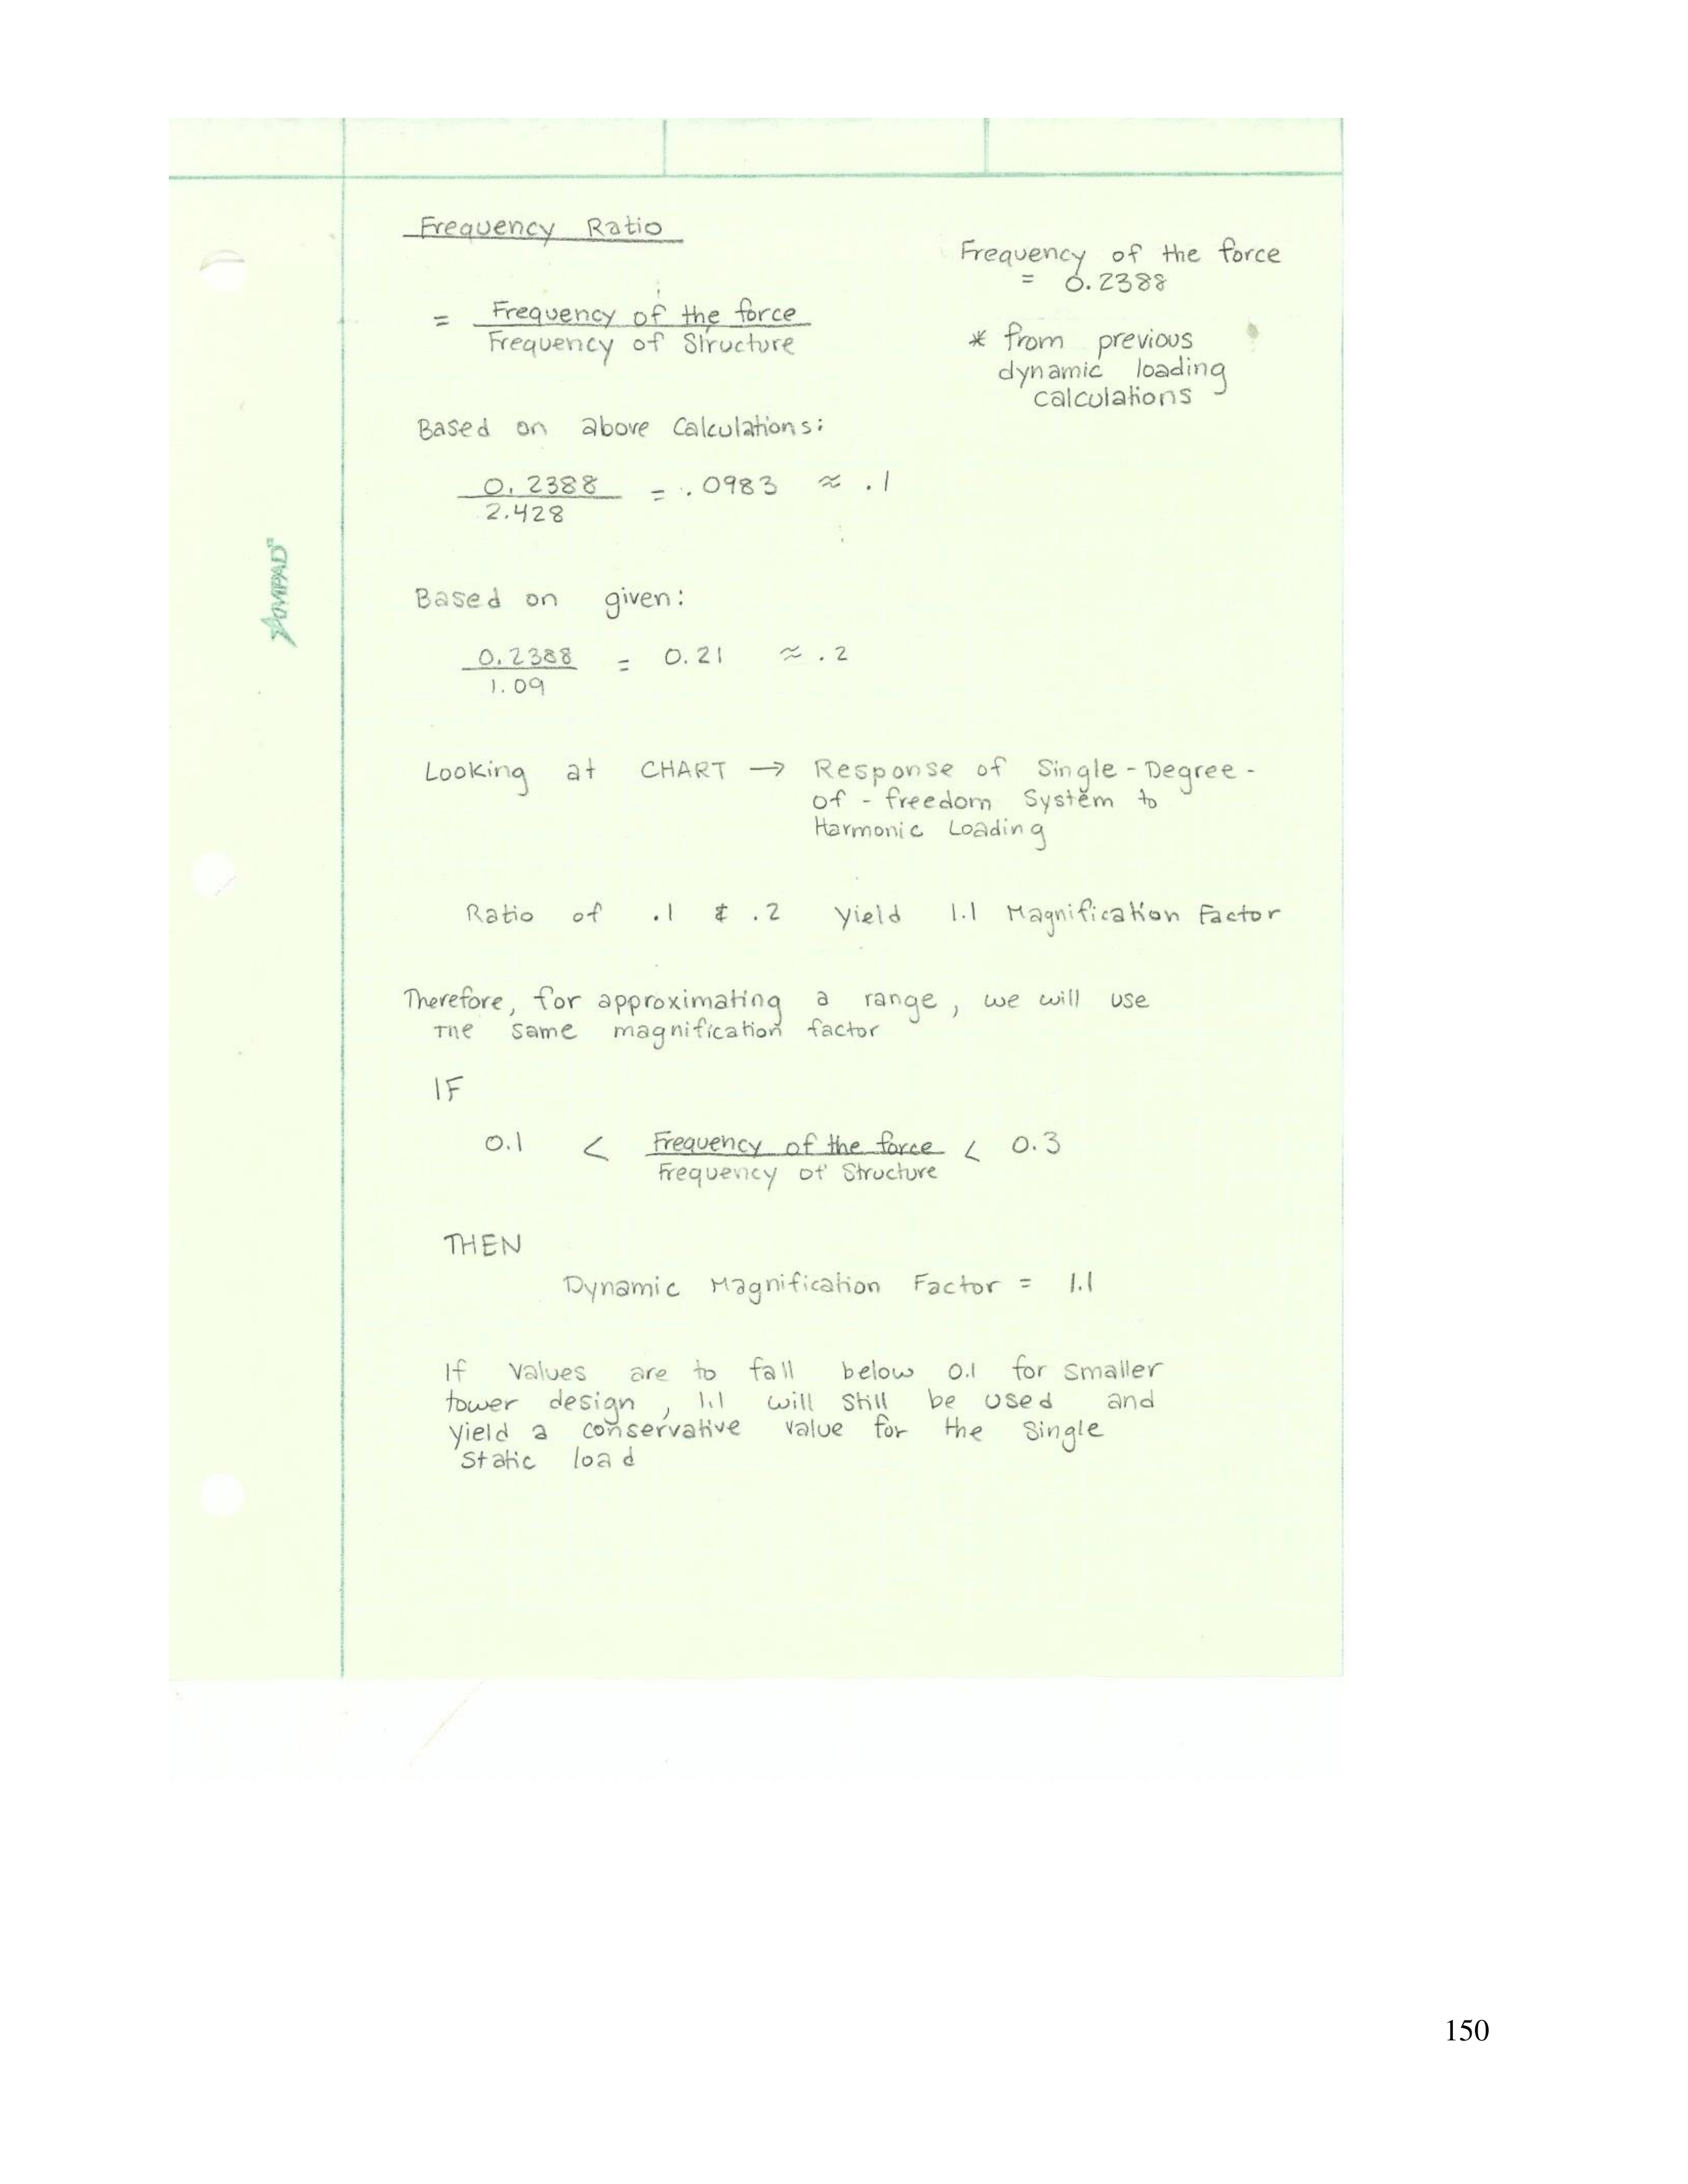 Frequency Ratio
Frequency of the force
= 0.2388
= Frequency of the force
Frequency of Structure
* from previous
dynamic loading
calculations
Based on above Calculations:
0.2388 = .0983 ≈ .1
2.428
AMPAD
Based on given:
0.2388 = 0.21 ≈ .2
1.09
Looking at CHART → Response of Single-Degree-
of-freedom System to
Harmonic Loading
Ratio of .1 & .2 yield 1.1 Magnification Factor
Therefore, for approximating a range, we will use
The same magnification factor
IF
0.1 < Frequency of the force < 0.3
Frequency of Structure
THEN
Dynamic Magnification Factor = 1.1
If Values are to fall below 0.1 for smaller
tower design, 1.1 will still be used and
yield a conservative value for the single
static load
150